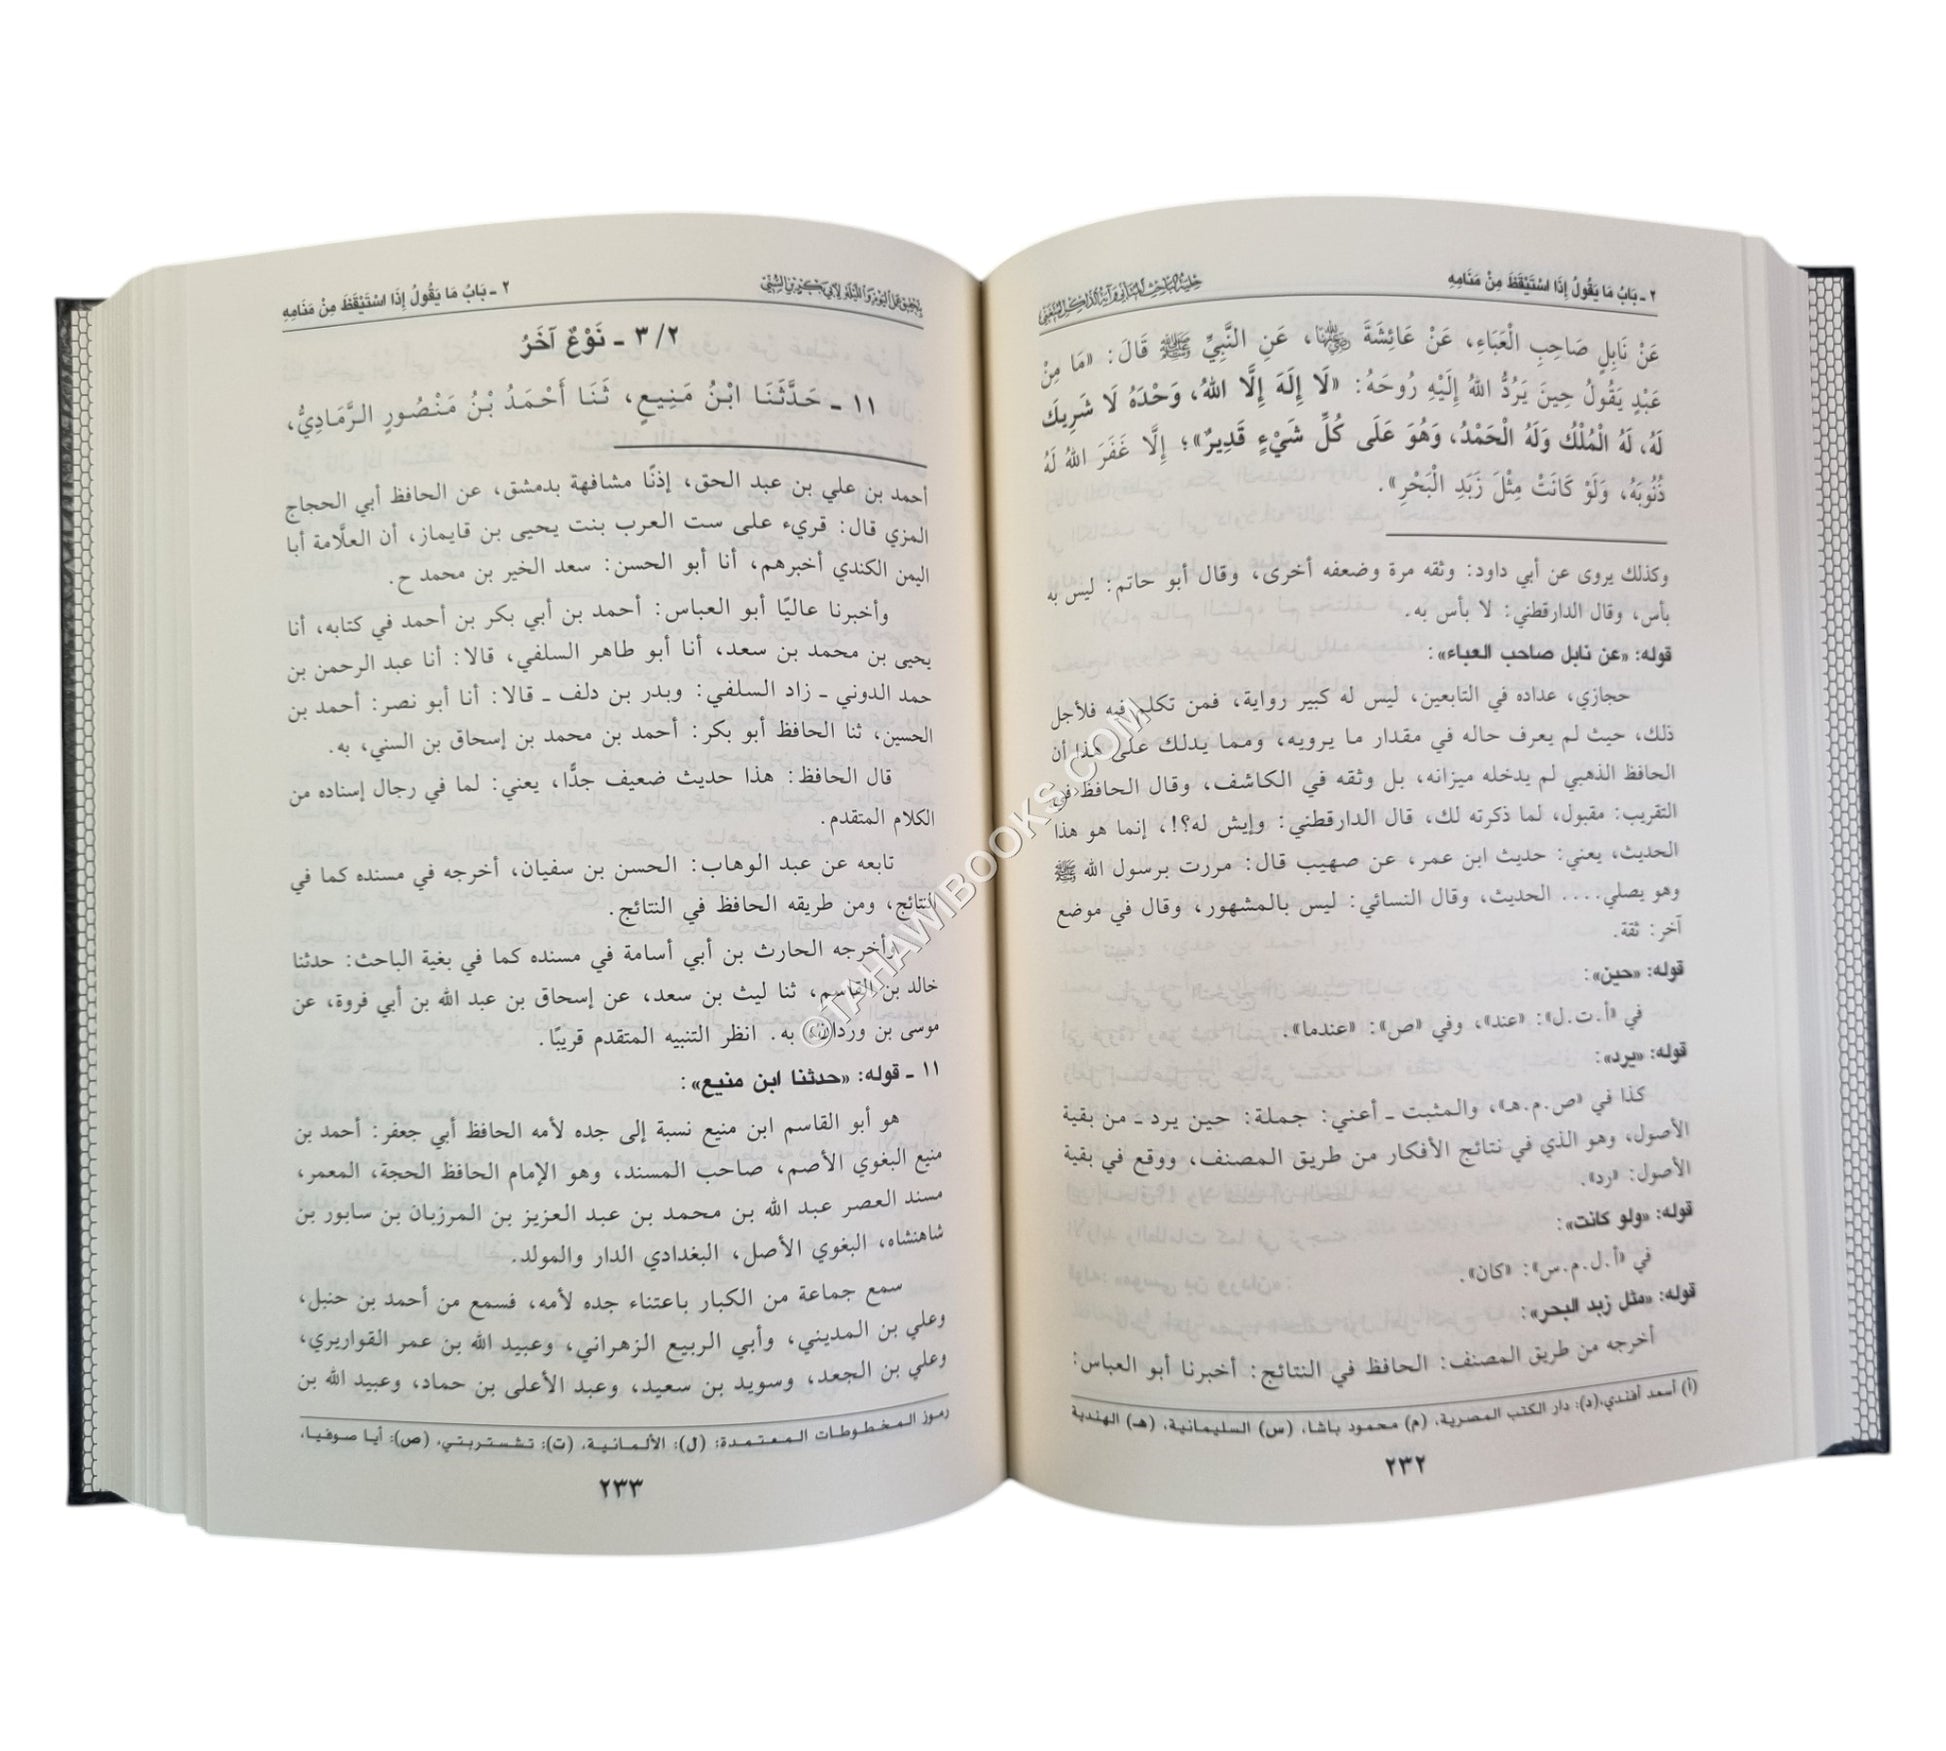 ٢ - بَابُ مَا يَقُولُ إِذَا اسْتَيْقَظَ مِنْ مَنَامِهِ
عَنْ نَابِلٍ صَاحِبِ الْعَبَاءِ، عَنْ عَائِشَةَ رَضِيَ اللَّهُ عَنْهَا، عَنِ النَّبِيِّ ﷺ قَالَ: «مَا مِنْ
عَبْدٍ يَقُولُ حِينَ يَرُدُّ اللهُ إِلَيْهِ رُوحَهُ: «لَا إِلَهَ إِلَّا اللهُ، وَحْدَهُ لَا شَرِيكَ
لَهُ، لَهُ الْمُلْكُ وَلَهُ الْحَمْدُ، وَهُوَ عَلَى كُلِّ شَيْءٍ قَدِيرٌ»؛ إِلَّا غَفَرَ اللهُ لَهُ
ذُنُوبَهُ، وَلَوْ كَانَتْ مِثْلَ زَبَدِ الْبَحْرِ».
وكذلك يروى عن أبي داود: وثقه مرة وضعفه أخرى، وقال أبو حاتم: ليس به
بأس، وقال الدارقطني: لا بأس به.
قوله: «عن نابل صاحب العباء»:
حجازي، عداده في التابعين، ليس له كبير رواية، فمن تكلم فيه فلأجل
ذلك، حيث لم يعرف حاله في مقدار ما يرويه، ومما يدلك على هذا أن
الحافظ الذهبي لم يدخله ميزانه، بل وثقه في الكاشف، وقال الحافظ في
التقريب: مقبول، لما ذكرته لك، قال الدارقطني: وإيش له؟!، إنما هو هذا
الحديث، يعني: حديث ابن عمر، عن صهيب قال: مررت برسول الله ﷺ
وهو يصلي.... الحديث، وقال النسائي: ليس بالمشهور، وقال في موضع
آخر: ثقة.
قوله: «حين»:
في «أ.ت.ل»: «عند»، وفي «ص»: «عندما».
قوله: «يرد»:
كذا في «ص.م.هـ»، والمثبت - أعني: جملة: حين يرد - من بقية
الأصول، وهو الذي في نتائج الأفكار من طريق المصنف، ووقع في بقية
الأصول: «رد».
قوله: «ولو كانت»:
في «أ.ل.م.س»: «كان».
قوله: «مثل زبد البحر»:
أخرجه من طريق المصنف: الحافظ في النتائج: أخبرنا أبو العباس:
(أ) أسعد أفندي،(د): دار الكتب المصرية، (م) محمود باشا، (س) السليمانية، (هـ) الهندية
٢٣٢
٢ - بَابُ مَا يَقُولُ إِذَا اسْتَيْقَظَ مِنْ مَنَامِهِ
٣/٢ - نَوْعٌ آخَرُ
١١ - حَدَّثَنَا ابْنُ مَنِيعٍ، ثَنَا أَحْمَدُ بْنُ مَنْصُورٍ الرَّمَادِيُّ،
أحمد بن علي بن عبد الحق، إذنًا مشافهة بدمشق، عن الحافظ أبي الحجاج
المزي قال: قريء على ست العرب بنت يحيى بن قايماز، أن العلَّامة أبا
اليمن الكندي أخبرهم، أنا أبو الحسن: سعد الخير بن محمد ح.
وأخبرنا عاليًا أبو العباس: أحمد بن أبي بكر بن أحمد في كتابه، أنا
يحيى بن محمد بن سعد، أنا أبو طاهر السلفي، قالا: أنا عبد الرحمن بن
حمد الدوني - زاد السلفي: وبدر بن دلف - قالا: أنا أبو نصر: أحمد بن
الحسين، ثنا الحافظ أبو بكر: أحمد بن محمد بن إسحاق بن السني، به.
قال الحافظ: هذا حديث ضعيف جدًّا، يعني: لما في رجال إسناده من
الكلام المتقدم.
تابعه عن عبد الوهاب: الحسن بن سفيان، أخرجه في مسنده كما في
النتائج، ومن طريقه الحافظ في النتائج.
وأخرجه الحارث بن أبي أسامة في مسنده كما في بغية الباحث: حدثنا
خالد بن القاسم، ثنا ليث بن سعد، عن إسحاق بن عبد الله بن أبي فروة، عن
موسى بن وردان، به. انظر التنبيه المتقدم قريبًا.
١١ - قوله: «حدثنا ابن منيع»:
هو أبو القاسم ابن منيع نسبة إلى جده لأمه الحافظ أبي جعفر: أحمد بن
منيع البغوي الأصم، صاحب المسند، وهو الإمام الحافظ الحجة، المعمر،
مسند العصر عبد الله بن محمد بن عبد العزيز بن المرزبان بن سابور بن
شاهنشاه، البغوي الأصل، البغدادي الدار والمولد.
سمع جماعة من الكبار باعتناء جده لأمه، فسمع من أحمد بن حنبل،
وعلي بن المديني، وأبي الربيع الزهراني، وعبيد الله بن عمر القواريري،
وعلي بن الجعد، وسويد بن سعيد، وعبد الأعلى بن حماد، وعبيد الله بن
رموز المخطوطات المعتمدة: (ل): الألمانية، (ت): تشستربتي، (ص): أيا صوفيا،
٢٣٣
©TAHAWIBOOKS.COM